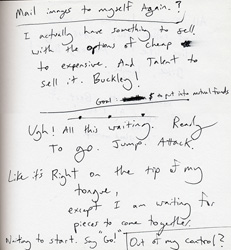 Mail images to myself Again.?
I actually have something to sell
with the options of cheap
to expensive. And Talent to
sell it. Buckley!
Goal - $ to put into mutual funds
Ugh! All this waiting. Ready
To go. Jump. Attack.
Like it's Right on the tip of my
tongue,
except I am waiting for
pieces to come together.
Waiting to start. Say "Go!"
Out of my control?